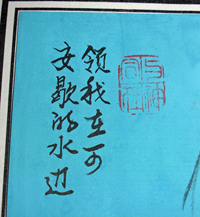 领我在可
安歇的水边